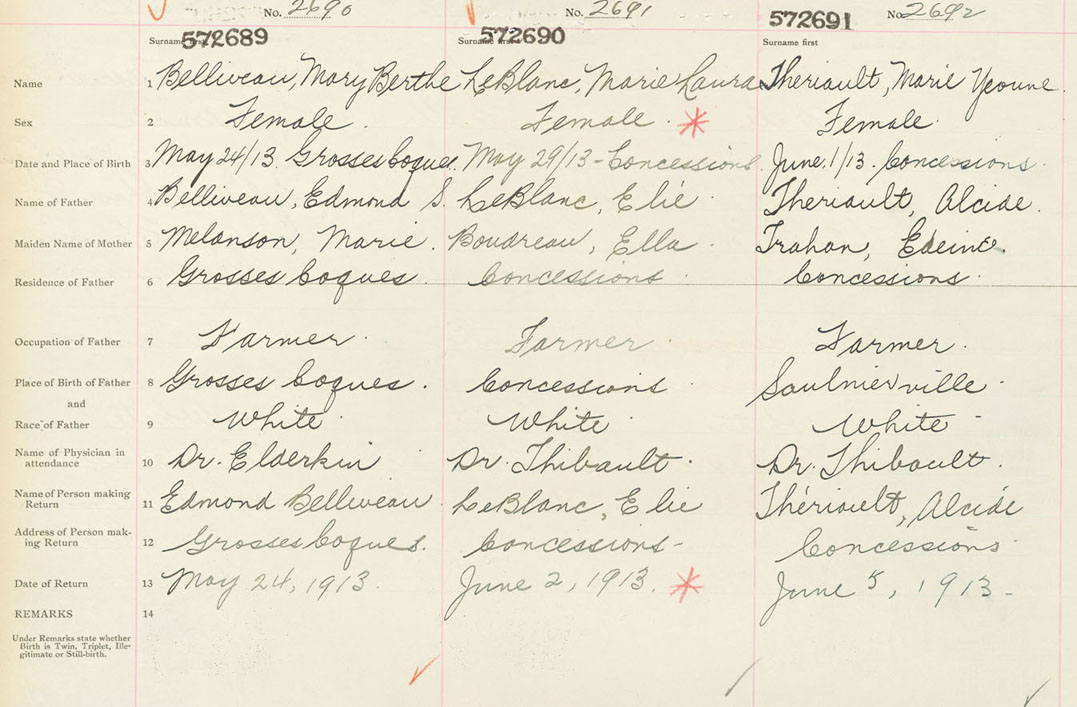 No. 2690 No. 2691 No. 2692
572689 572690 572691
Surname first Surname first Surname first
Name 1 Belliveau, Mary Berthe LeBlanc, Marie Laura Theriault, Marie Yvonne.
Sex 2 Female. Female. Female.
Date and Place of Birth 3 May 24/13. Grosses Coques. May 29/13 - Concessions. June 1/13. Concessions.
Name of Father 4 Belliveau, Edmond S. LeBlanc, Elié. Theriault, Alcide.
Maiden Name of Mother 5 Melanson, Marie. Boudreau, Ella. Trahan,
Residence of Father 6 Grosses Coques. Concessions. Concessions.
Occupation of Father 7 Farmer. Farmer. Farmer.
Place of Birth of Father 8 Grosses Coques. Concessions. Saulnierville.
and
Race of Father 9 White. White. White.
Name of Physician in
attendance 10 Dr. Elderkin Dr. Thibault. Dr. Thibault.
Name of Person making
Return 11 Edmond Belliveau. LeBlanc, Elie Thériault, Alcide
Address of Person mak-
ing Return 12 Grosses Coques. Concessions- Concessions.
Date of Return 13 May 24, 1913. June 2, 1913. June 5, 1913-
REMARKS 14
Under Remarks state whether
Birth is Twin, Triplet, Ille-
gitimate or Still-birth.